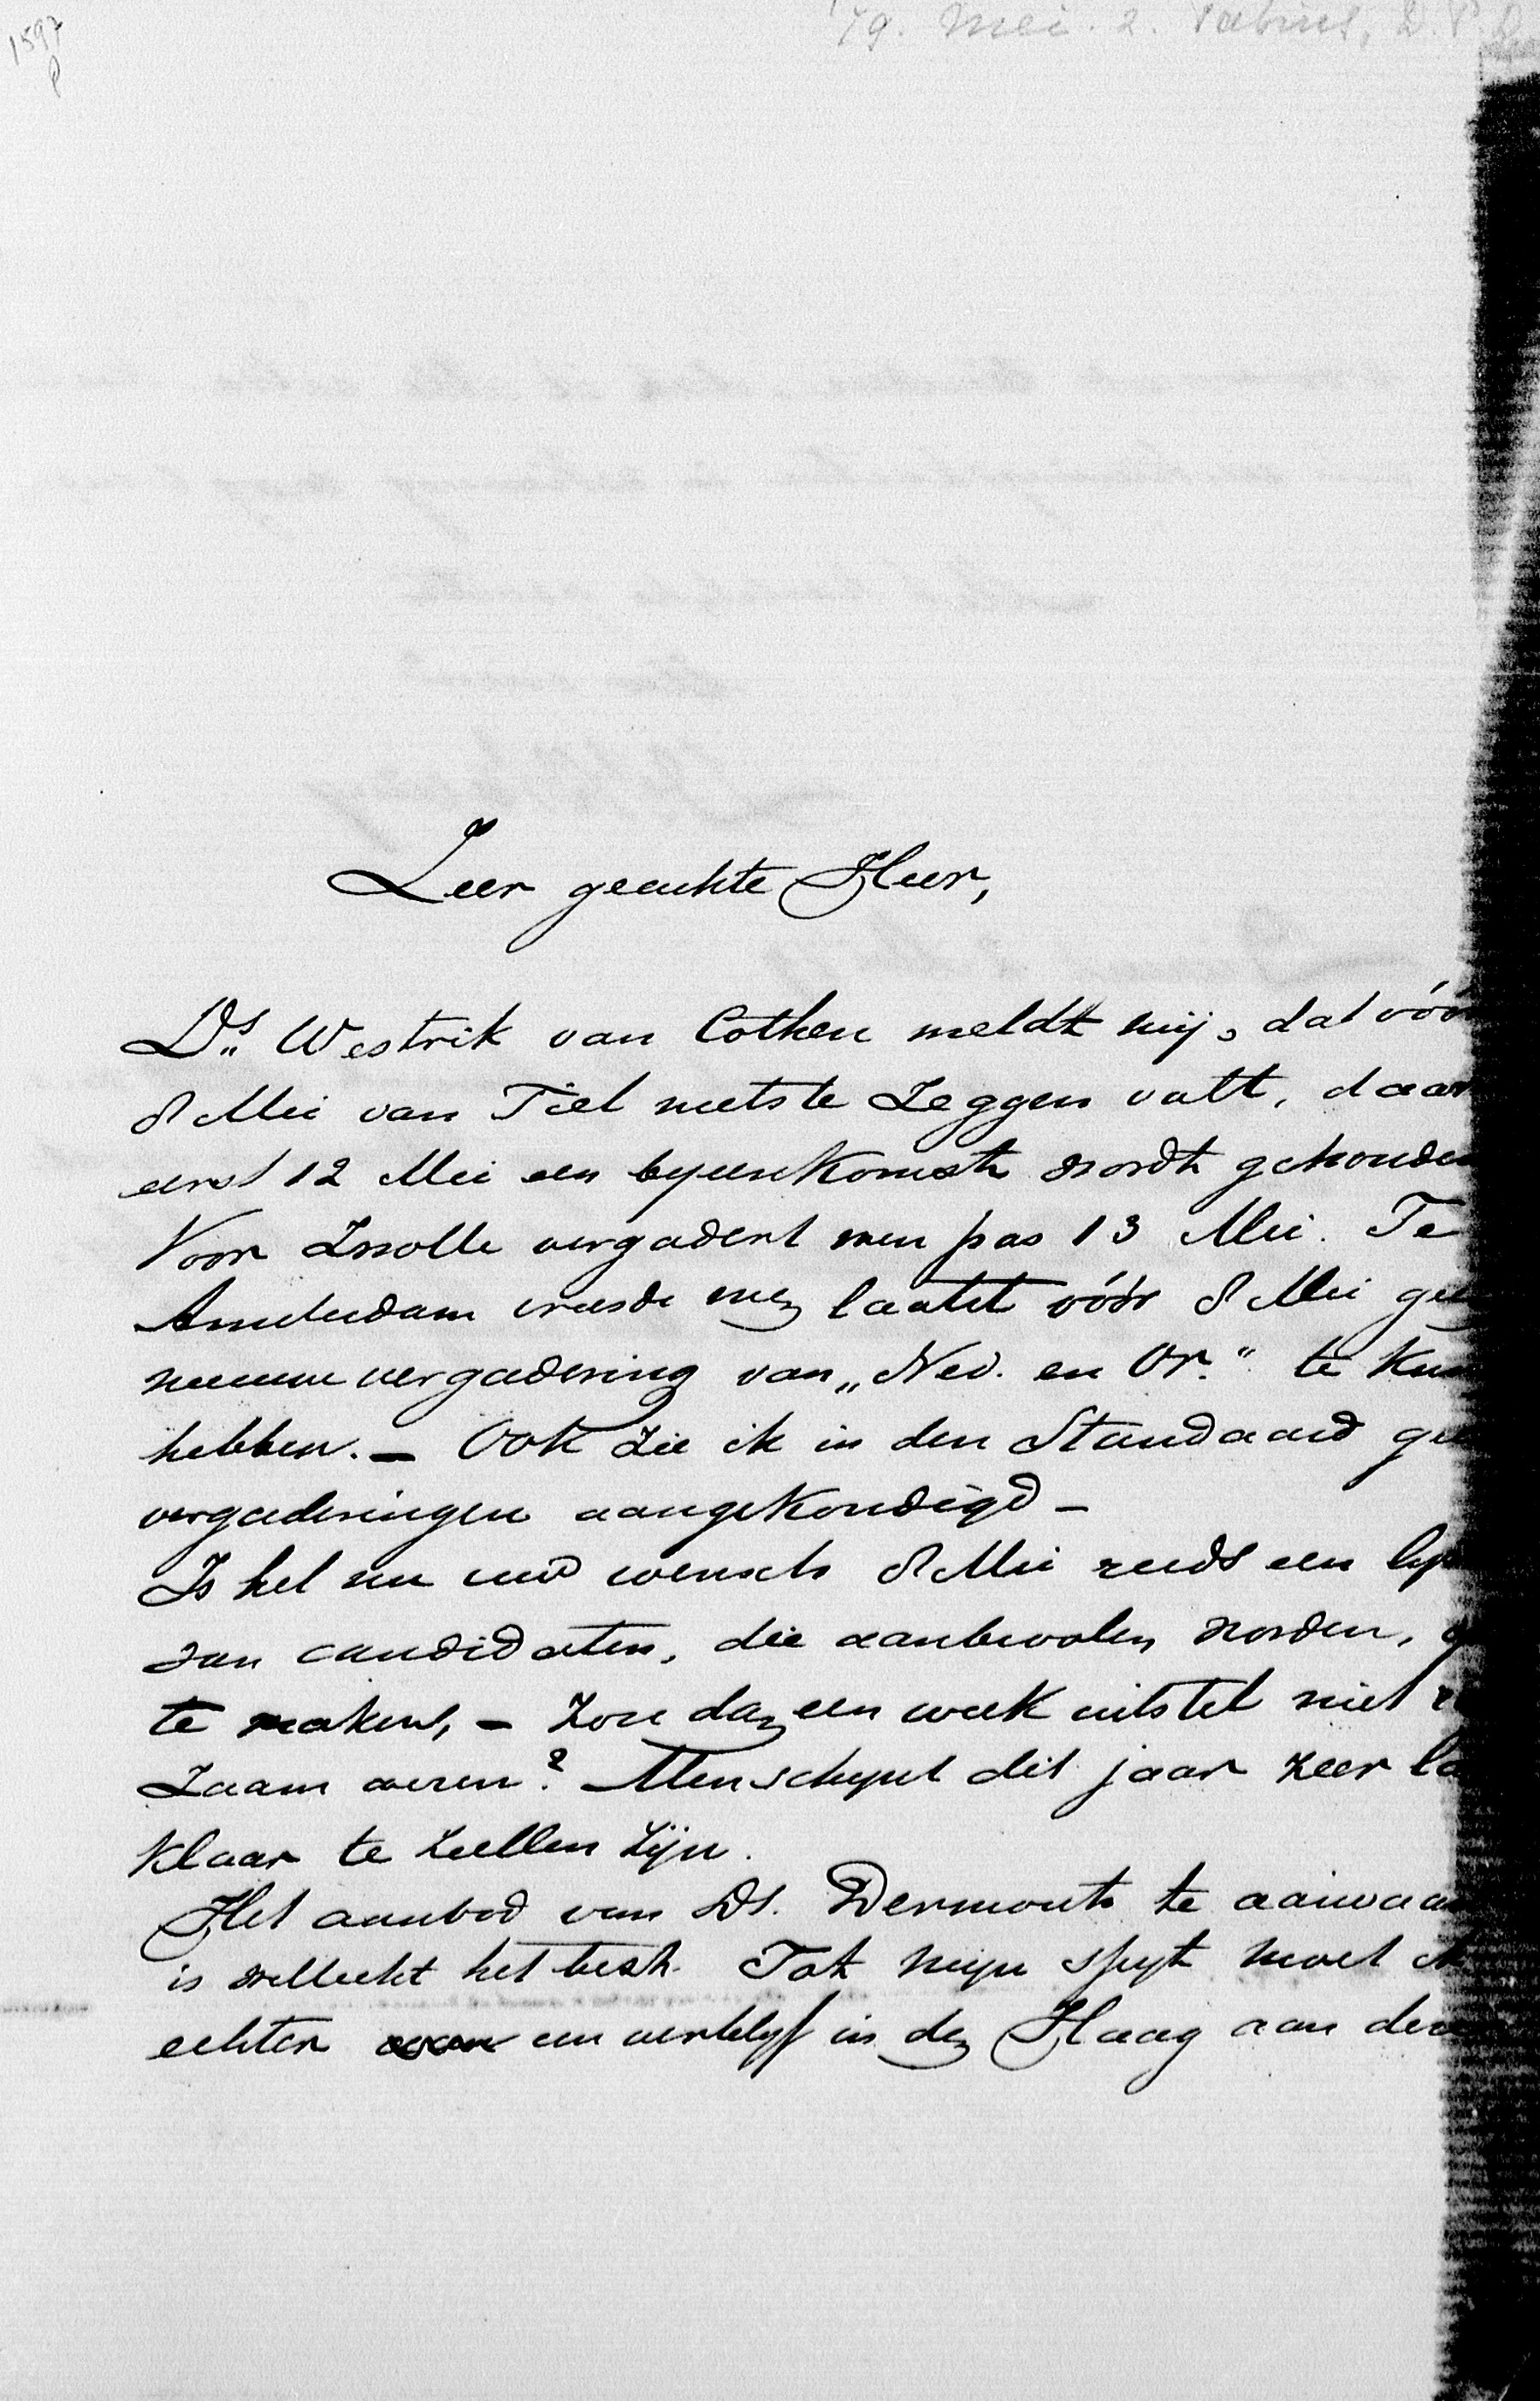 1597
'79. Mei. 2. Fabius, D. P. D
Zeer geachte Heer,
Ds. Westrik van Cothen meldt mij, dat vóór
8 Mei van Tiel niets te zeggen valt, daar
eerst 12 Mei een byeenkomst wordt gehouden
Voor Zwolle vergadert men pas 13 Mei. Te
Amsterdam vreesde men laatst vóór 8 Mei gee
nieuwe vergadering van „Ned. en Or." te kun
hebben. – Ook zie ik in den Standaard gee
vergaderingen aangekondigd –
Is het nu uw wensch 8 Mei reeds een lys
van candidaten, die aanbevolen worden,
te maken, – zou dan een week uitstel niet
zaam wezen? Men schynt dit jaar zeer la
klaar te zullen zijn.
Het aanbod van Ds. Dermout te aanvaar
is wellicht het best. Tot myn spyt moet ik
echter een verblyf in den Haag aan den